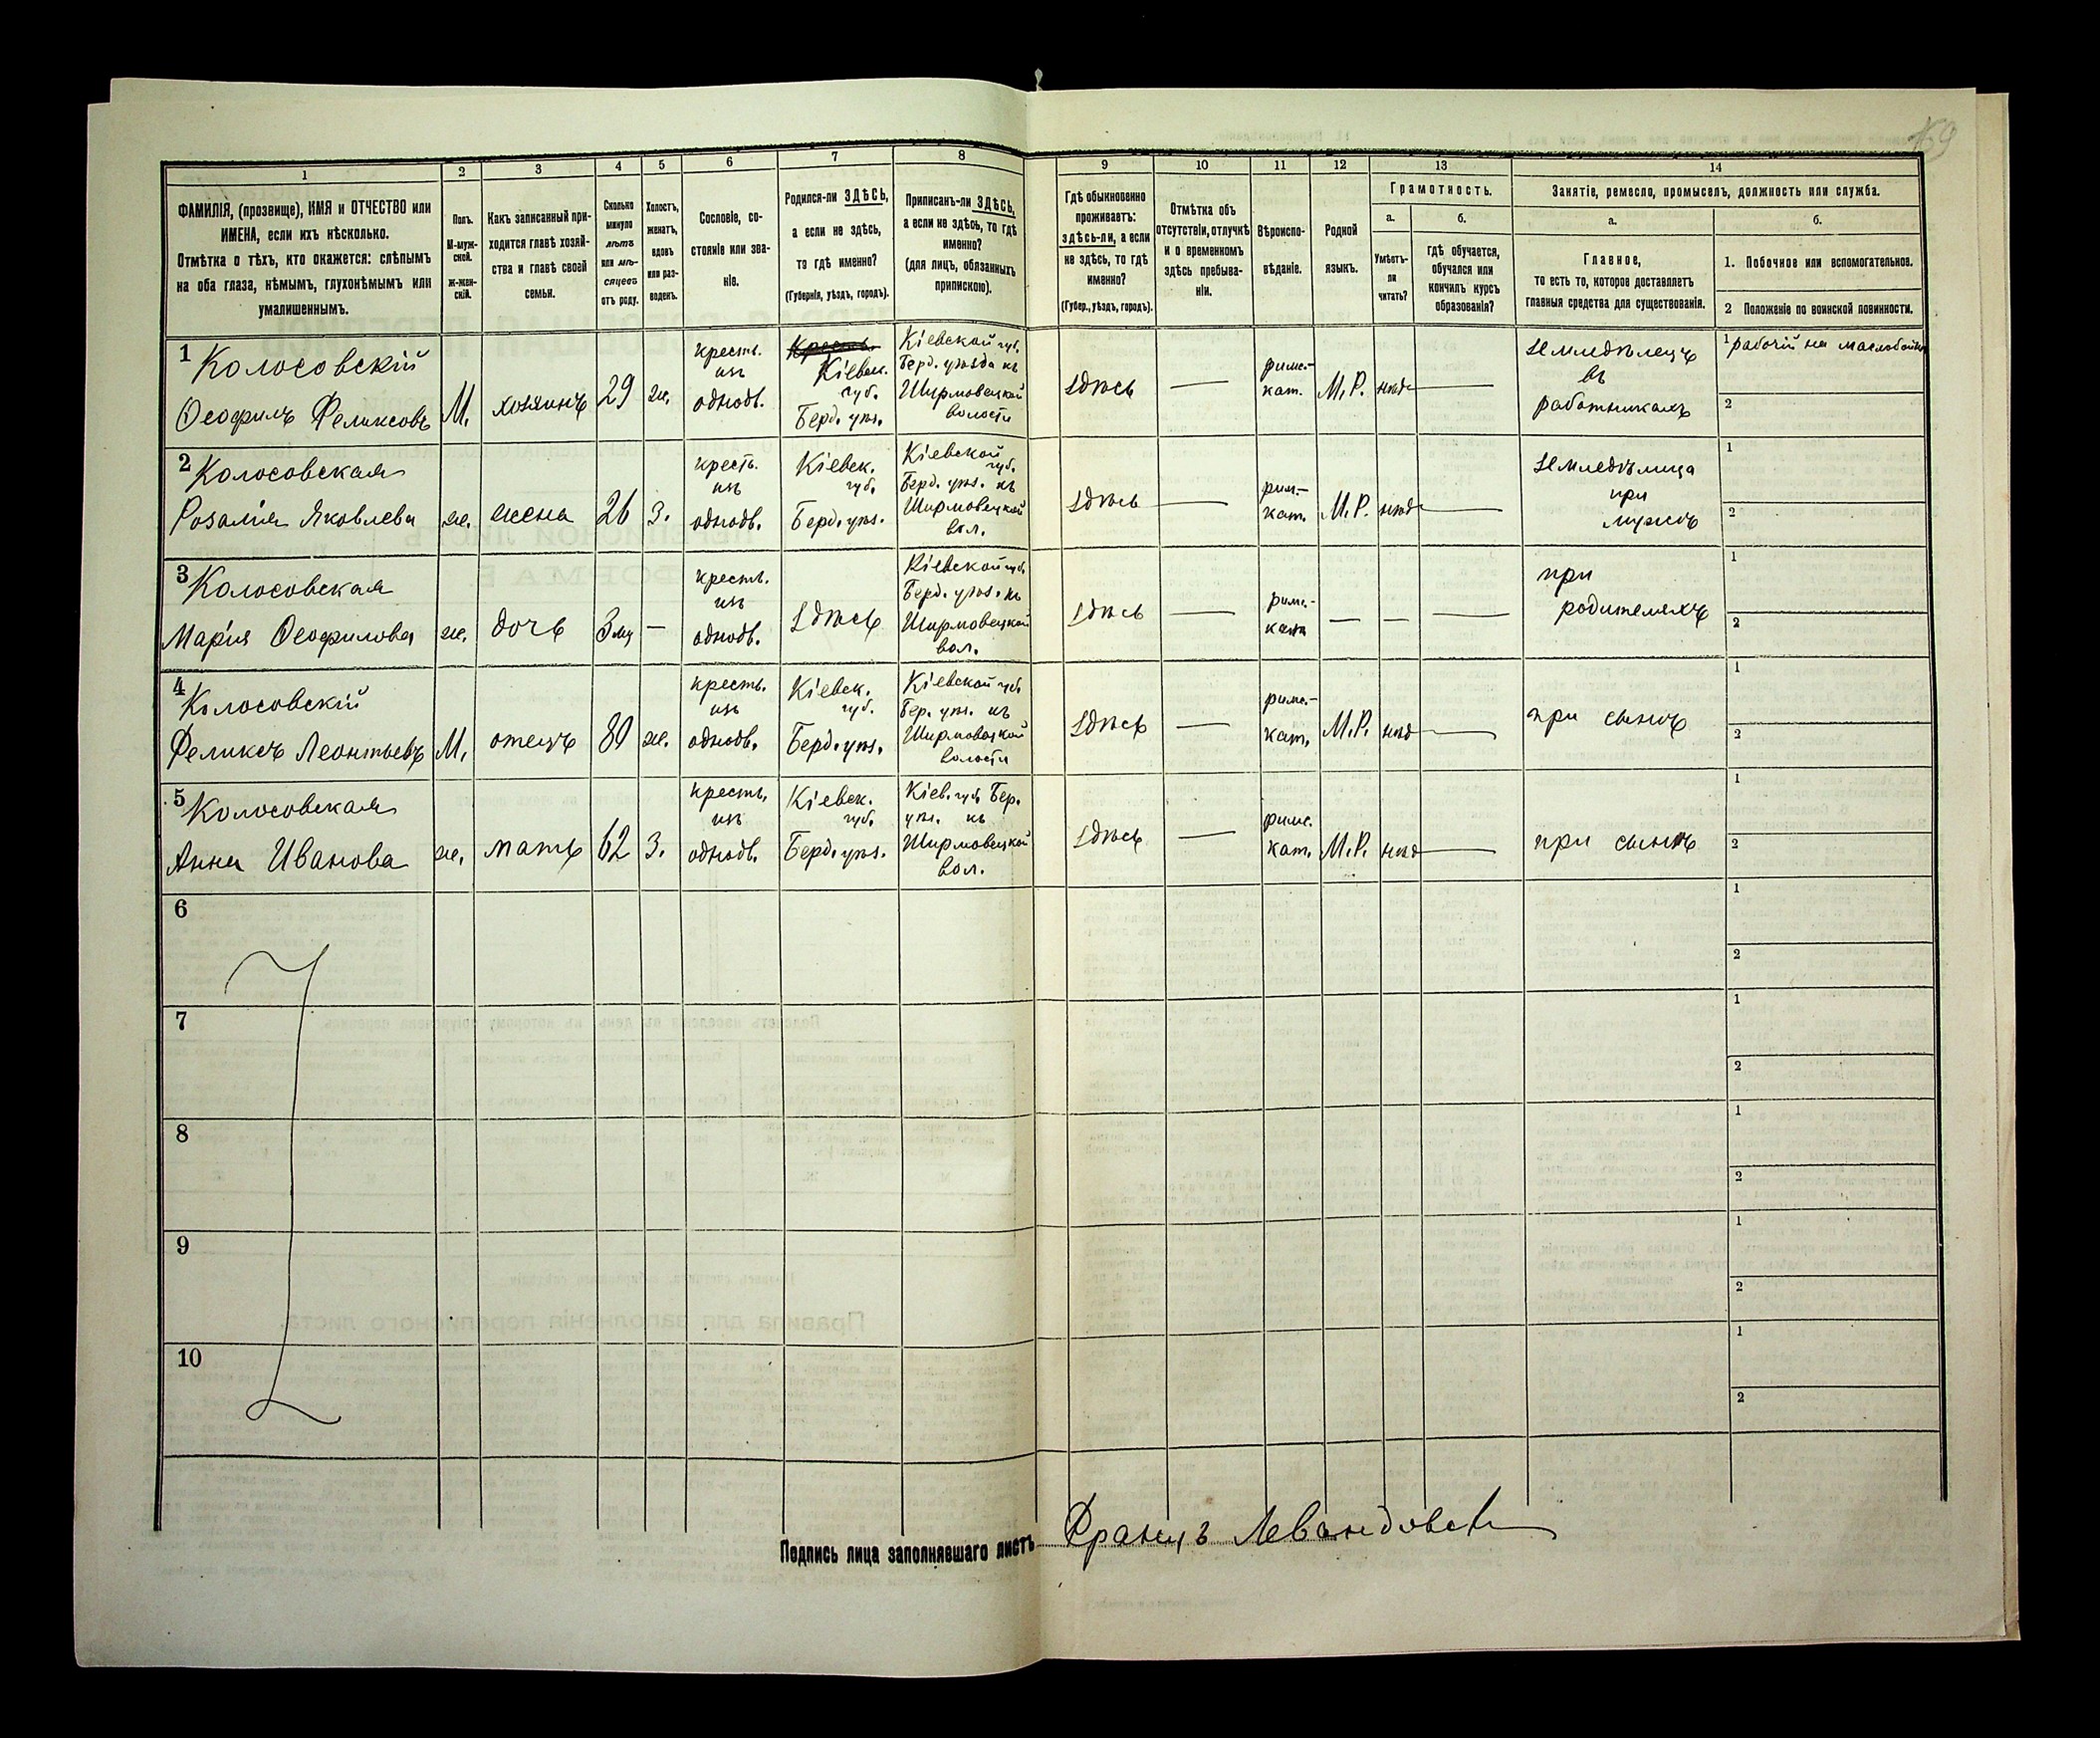 69
1
2
3
4
5
6
7
8
9
10
11
12
13
14
ФАМИЛІЯ, (прозвище), ИМЯ и ОТЧЕСТВО или
ИМЕНА, если ихъ нѣсколько.
Отмѣтка о тѣхъ, кто окажется: слѣпымъ
на оба глаза, нѣмымъ, глухонѣмымъ или
умалишеннымъ.
Полъ.
М-муж-
ской.
ж-жен-
скій.
Какъ записанный при-
ходится главѣ хозяй-
ства и главѣ своей
семьи.
Сколько
минуло
лѣтъ
или мѣ-
сяцевъ
отъ роду.
Холостъ,
женатъ,
вдовъ
или раз-
веденъ.
Сословіе, со-
стояніе или зва-
ніе.
Родился-ли ЗДѢСЬ,
а если не здѣсь,
то гдѣ именно?
(Губернія, уѣздъ, городъ).
Приписанъ-ли ЗДѢСЬ,
а если не здѣсь, то гдѣ
именно?
(для лицъ, обязанныхъ
припискою).
Гдѣ обыкновенно
проживаетъ:
здѣсь-ли, а если
не здѣсь, то гдѣ
именно?
(Губер., уѣздъ, городъ).
Отмѣтка объ
отсутствіи, отлучкѣ
и о временномъ
здѣсь пребыва-
ніи.
Вѣроиспо-
вѣданіе.
Родной
языкъ.
Грамотность.
а.
б.
Умѣетъ-
ли
читать?
Гдѣ обучается,
обучался или
кончилъ курсъ
образованія?
Занятіе, ремесло, промыселъ, должность или служба.
а.
б.
Главное,
то есть то, которое доставляетъ
главныя средства для существованія.
1. Побочное или вспомогательное.
2 Положеніе по воинской повинности.
1
Колосовскій
Ѳеофилъ Феликсовъ
М.
хозяинъ
29
ж.
кресть.
изъ
однодв.
Кіевск.
губ.
Берд. уѣз.
Кіевской губ.
Берд. уѣзда къ
Ширмовецкой
волости
здѣсь
—
римс.-
кат.
М.Р.
нѣтъ
—
земледѣлецъ
въ
работникахъ
1
рабочій на маслобойнѣ
2
2
Колосовская
Розалія Яковлева
ж.
жена
26
з.
кресть.
изъ
однодв.
Кіевск.
губ.
Берд. уѣз.
Кіевской
губ.
Берд. уѣз. къ
Ширмовецкой
вол.
здѣсь
—
рим.-
кат.
М.Р.
нѣтъ
—
земледѣлица
при
мужѣ
1
2
3
Колосовская
Марія Ѳеофилова
ж.
дочь
3 мѣ
—
кресть.
изъ
однодв.
здѣсь
Кіевской губ.
Берд. уѣз. къ
Ширмовецкой
вол.
здѣсь
—
римс.-
кат.
—
—
—
при
родителяхъ
1
2
4
Колосовскій
Феликсъ Леонтьевъ
М.
отецъ
80
ж.
кресть.
изъ
однодв.
Кіевск.
губ.
Берд. уѣз.
Кіевской губ.
Бер. уѣз. къ
Ширмовецкой
волости
здѣсь
—
римс.-
кат.
М.Р.
нѣтъ
—
при сынѣ
1
2
5
Колосовская
Анна Иванова
ж.
мать
62
з.
кресть.
изъ
однодв.
Кіевск.
губ.
Берд. уѣз.
Кіев. губ. Бер.
уѣз. къ
Ширмовецкой
вол.
здѣсь
—
римс.
кат.
М.Р.
нѣтъ
—
при сынѣ
1
2
6
1
2
7
1
2
8
1
2
9
1
2
10
1
2
Подпись лица заполнявшаго листъ
Францъ Левандовск